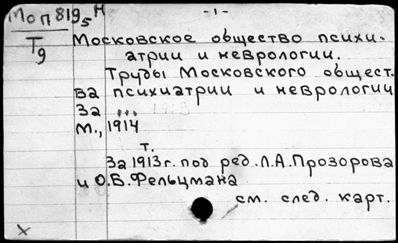 МоП819₅ Н
- 1 -
Т9
Московское общество психи-
атрии и неврологии.
Труды Московского общест-
ва психиатрии и неврологии
За ... 1913
М., 1914
т.
За 1913 г. под ред. Л.А. Прозорова
и О.Б. Фельцмана
см. след. карт.
х